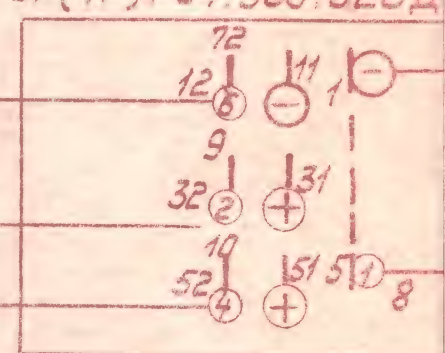 72
12 6 11 1
9
32 2 31
10
52 4 51 5 1 8